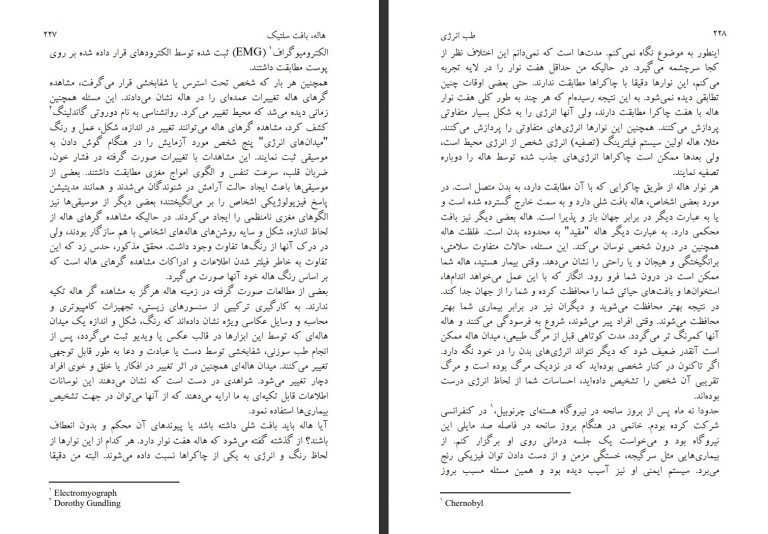 هاله، بافت سلتیک ۲۲۷
الکترومیوگراف۱ (EMG) ثبت شده توسط الکترودهای قرار داده شده بر روی
پوست مطابقت داشتند.
همچنین هر بار که شخص تحت استرس یا شفابخشی قرار می‌گرفت، مشاهده
گرهای هاله تغییرات عمده‌ای را در هاله نشان می‌دادند. این مسئله همچنین
زمانی دیده می‌شد که محیط تغییر می‌کرد. روانشناسی به نام دوروتی گاندلینگ۲
کشف کرد، مشاهده گرهای هاله می‌توانند تغییر در اندازه، شکل، عمل و رنگ
"میدان‌های انرژی" پنج شخص مورد آزمایش را در هنگام گوش دادن به
موسیقی ثبت نمایند. این مشاهدات با تغییرات صورت گرفته در فشار خون،
ضربان قلب، سرعت تنفس و الگوی امواج مغزی مطابقت داشتند. بعضی از
موسیقی‌ها باعث ایجاد حالت آرامش در شنوندگان می‌شدند و همانند مدیتیشن
پاسخ فیزیولوژیکی اشخاص را بر می‌انگیختند؛ بعضی دیگر از موسیقی‌ها نیز
الگوهای مغزی نامنظمی را ایجاد می‌کردند. در حالیکه مشاهده گرهای هاله از
لحاظ اندازه، شکل و سایه روشن‌های هاله‌های اشخاص با هم سازگار بودند، ولی
در درک آنها از رنگ‌ها تفاوت وجود داشت. محقق مذکور، حدس زد که این
تفاوت به خاطر فیلتر شدن اطلاعات و ادراکات مشاهده گرهای هاله است که
بر اساس رنگ هاله خود آنها صورت می‌گیرد.
بعضی از مطالعات صورت گرفته در زمینه هاله هرگز به مشاهده گر هاله تکیه
ندارند. به کارگیری ترکیبی از سنسورهای زیستی، تجهیزات کامپیوتری و
محاسبه و وسایل عکاسی ویژه نشان داده‌اند که رنگ، شکل و اندازه یک میدان
هاله‌ای که توسط این ابزارها در قالب عکس یا ویدیو ثبت می‌گردد، پس از
انجام طب سوزنی، شفابخشی توسط دست یا عبادت و دعا به طور قابل توجهی
تغییر می‌کنند. میدان هاله‌ای همچنین در اثر تغییر در افکار یا خلق و خوی افراد
دچار تغییر می‌شود. شواهدی در دست است که نشان می‌دهند این نوسانات
اطلاعات قابل تکیه‌ای به ما ارایه می‌دهند که از آنها می‌توان در جهت تشخیص
بیماری‌ها استفاده نمود.
آیا هاله باید بافت شلی داشته باشد یا پیوندهای آن محکم و بدون انعطاف
باشند؟ از گذشته گفته می‌شود که هاله هفت نوار دارد. هر کدام از این نوارها از
لحاظ رنگ و انرژی به یکی از چاکراها نسبت داده می‌شوند. البته من دقیقا
۱ Electromyograph
۲ Dorothy Gundling
۲۲۸ طب انرژی
اینطور به موضوع نگاه نمی‌کنم. مدت‌ها است که نمی‌دانم این اختلاف نظر از
کجا سرچشمه می‌گیرد. در حالیکه من حداقل هفت نوار را در لایه تجربه
می‌کنم، این نوارها دقیقا با چاکراها مطابقت ندارند. حتی بعضی اوقات چنین
تطابقی دیده نمی‌شود. به این نتیجه رسیده‌ام که هر چند به طور کلی هفت نوار
هاله با هفت چاکرا مطابقت دارند، ولی آنها انرژی را به شکل بسیار متفاوتی
پردازش می‌کنند. همچنین این نوارها انرژی‌های متفاوتی را پردازش می‌کنند.
مثلا، هاله اولین سیستم فیلترینگ (تصفیه) انرژی شخص از انرژی محیط است،
ولی بعدها ممکن است چاکراها انرژی‌های جذب شده توسط هاله را دوباره
تصفیه نمایند.
هر نوار هاله از طریق چاکرایی که با آن مطابقت دارد، به بدن متصل است. در
مورد بعضی اشخاص، هاله بافت شلی دارد و به سمت خارج گسترده شده است و
یا به عبارت دیگر در برابر جهان باز و پذیرا است. هاله بعضی دیگر نیز بافت
محکمی دارد. به عبارت دیگر هاله "مقید" به محدوده بدن است. غلظت هاله
همچنین در درون شخص نوسان می‌کند. این مسئله، حالات متفاوت سلامتی،
برانگیختگی و هیجان و یا راحتی را نشان می‌دهد. وقتی بیمار هستید، هاله شما
ممکن است در درون شما فرو رود. انگار که با این عمل می‌خواهد اندام‌ها،
استخوان‌ها و بافت‌های حیاتی شما را محافظت کرده و شما را از جهان جدا کند.
در نتیجه بهتر محافظت می‌شوید و دیگران نیز در برابر بیماری شما بهتر
محافظت می‌شوند. وقتی افراد پیر می‌شوند، شروع به فرسودگی می‌کنند و هاله
آنها کمرنگ تر می‌گردد. مدت کوتاهی قبل از مرگ طبیعی، میدان هاله ممکن
است آنقدر ضعیف شود که دیگر نتواند انرژی‌های بدن را در خود نگه دارد.
اگر تاکنون در کنار شخصی بوده‌اید که در نزدیک مرگ بوده است و مرگ
تقریبی آن شخص را تشخیص داده‌اید، احساسات شما از لحاظ انرژی درست
بوده‌اند.
حدودا نه ماه پس از بروز سانحه در نیروگاه هسته‌ای چرنوبیل،۱ در کنفرانسی
شرکت کرده بودم. خانمی در هنگام بروز سانحه در فاصله صد مایلی این
نیروگاه بود و می‌خواست یک جلسه درمانی روی او برگزار کنم. از
بیماری‌هایی مثل سرگیجه، خستگی مزمن و از دست دادن توان فیزیکی رنج
می‌برد. سیستم ایمنی او نیز آسیب دیده بود و همین مسئله مسبب بروز
۱ Chernobyl